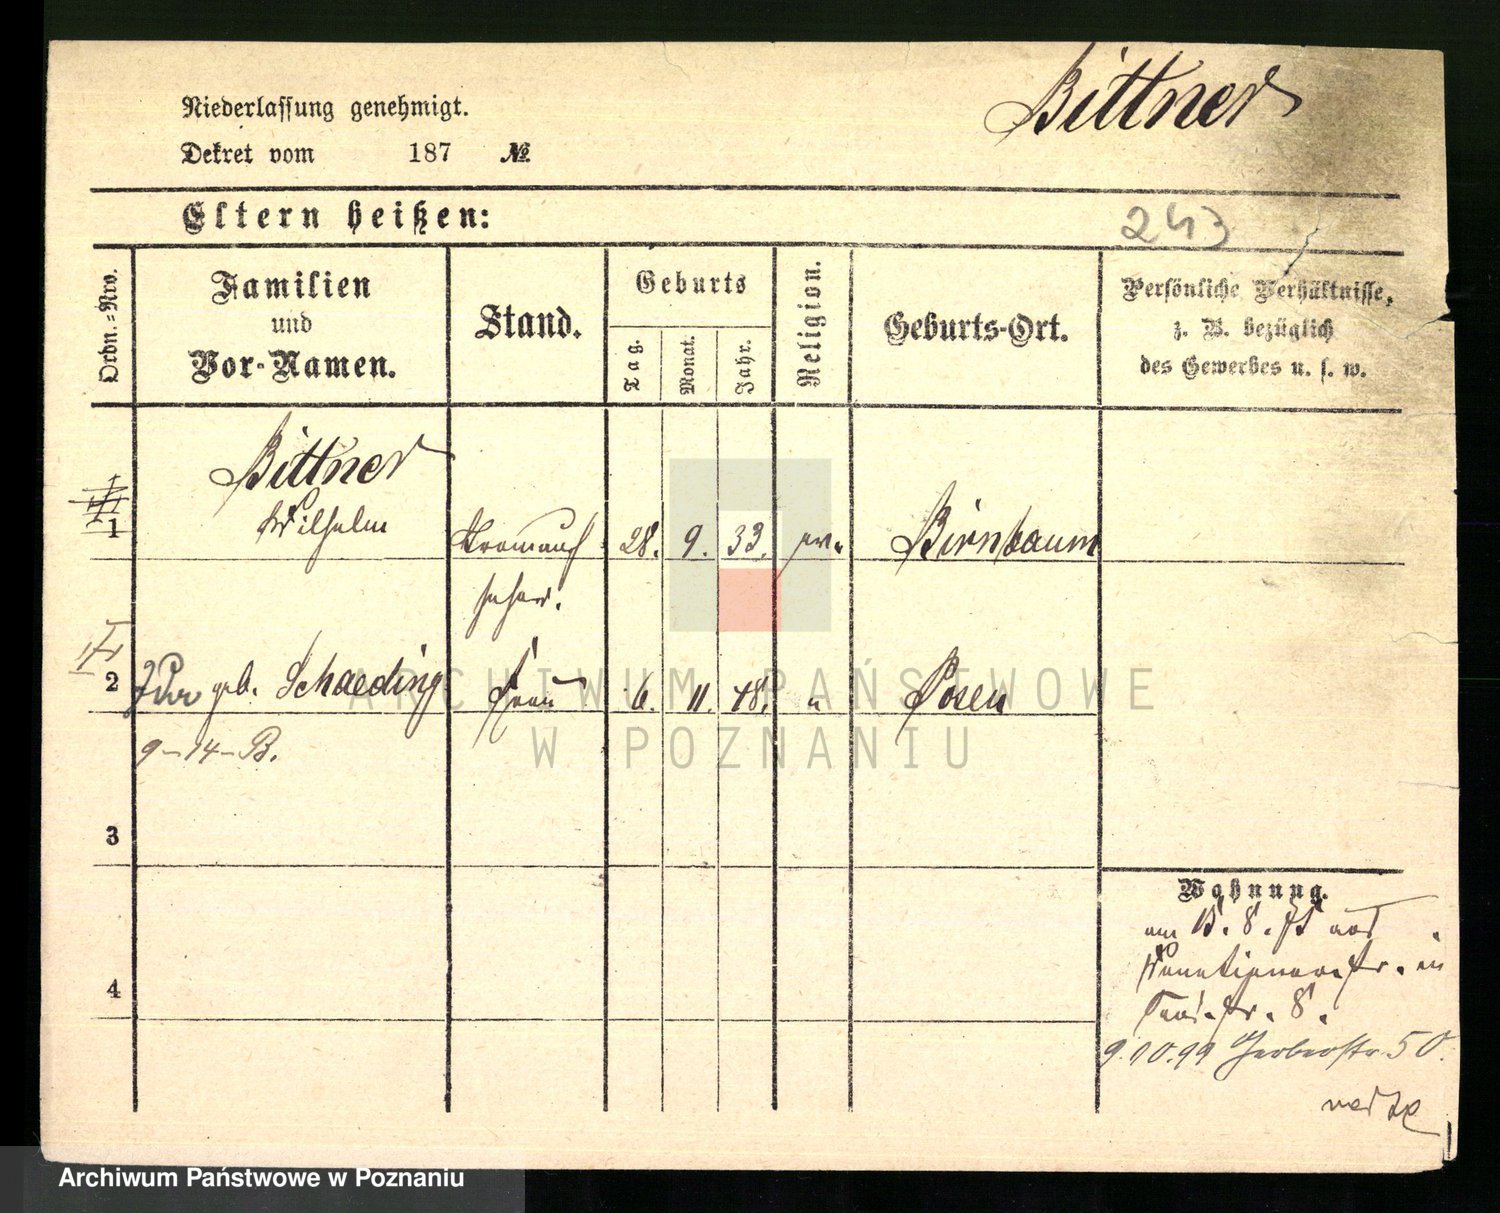 Bittner
Niederlassung genehmigt.
Dekret vom 187 №
Eltern heißen:
243
Ordn.-Nro.
Familien
und
Vor-Namen.
Stand.
Geburts
Tag.
Monat.
Jahr.
Religion.
Geburts-Ort.
Persönliche Verhältnisse,
z. B. bezüglich
des Gewerbes u. s. w.
Bittner
1 Wilhelm 28. 9. 33. Birnbaum
2 geb. Schaeding Frau 6. 11. 48. " Posen
9-14-B.
3
4
Wohnung.
am 8. aus
in
8.
9.10.99 Gerberstr. 50.
ARCHIWUM PAŃSTWOWE
W POZNANIU
Archiwum Państwowe w Poznaniu